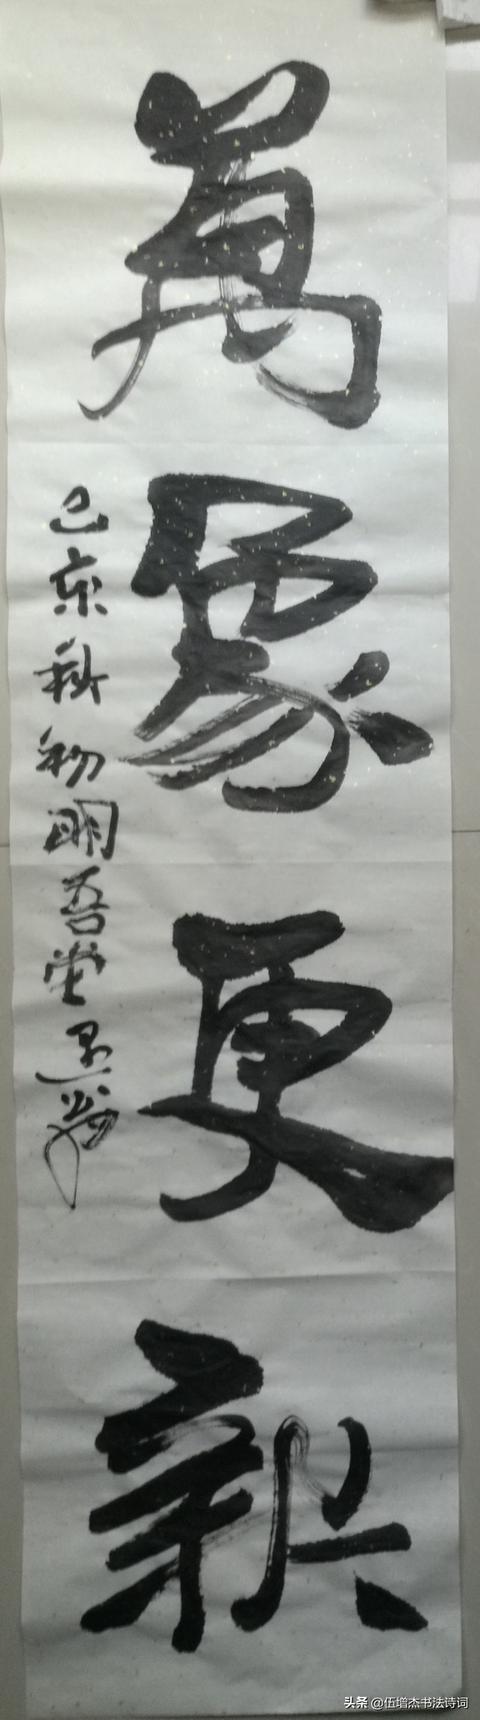 萬象更新
己亥秋初明吾堂
头条 @伍增杰书法诗词